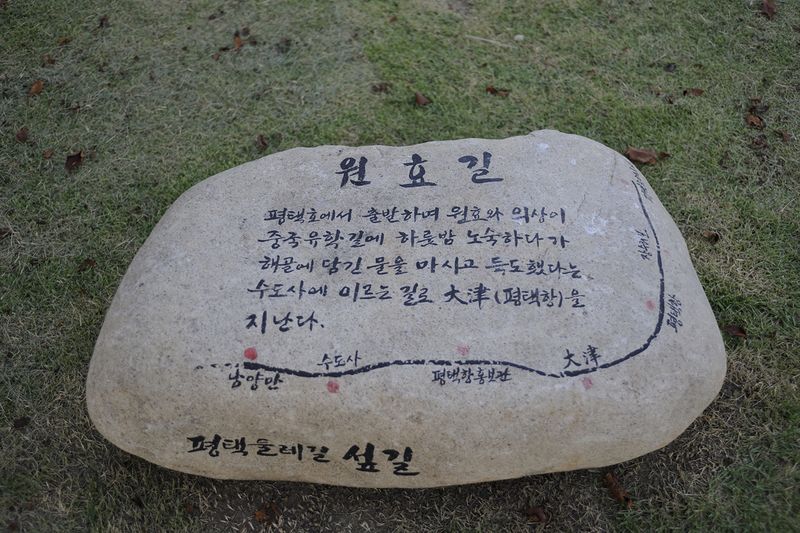 원효길
평택호에서 출발하며 원효와 의상이
중국유학길에 하룻밤 노숙하다가
해골에 담긴 물을 마시고 득도했다는
수도사에 이르는 길로 大津(평택항)을
지난다.
수도사
大津
남양만
평택항홍보관
평택둘레길 섶길